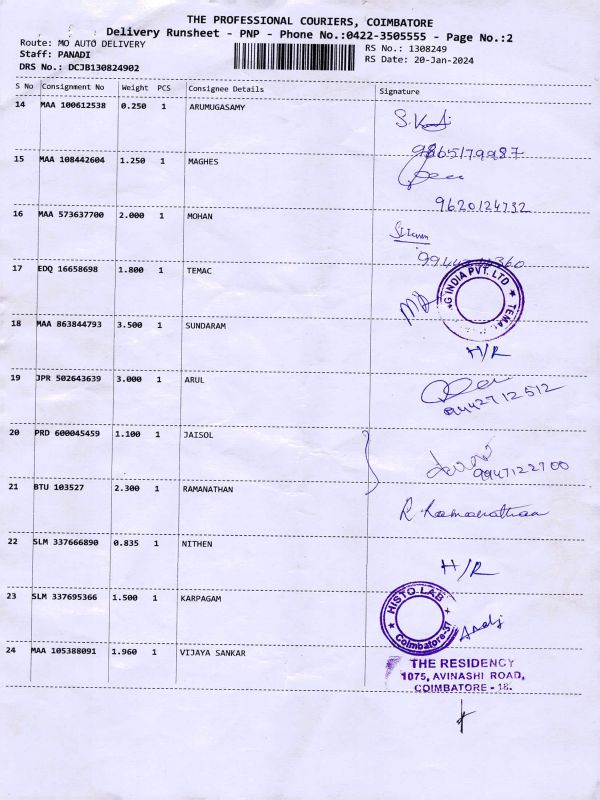 THE PROFESSIONAL COURIERS, COIMBATORE
Delivery Runsheet - PNP - Phone No.:0422-3505555 - Page No.:2
Route: MO AUTO DELIVERY
RS No.: 1308249
Staff: PANADI
RS Date: 20-Jan-2024
DRS No.: DCJB130824902
S No Consignment No Weight PCS Consignee Details Signature
14 MAA 100612538 0.250 1 ARUMUGASAMY
9865179987
15 MAA 108442604 1.250 1 MAGHES
9620124732
16 MAA 573637700 2.000 1 MOHAN
17 EDQ 16658698 1.800 1 TEMAC
G INDIA PVT. LTD ★ TEMA
18 MAA 863844793 3.500 1 SUNDARAM
H/R
19 JPR 502643639 3.000 1 ARUL
9442712512
20 PRD 600045459 1.100 1 JAISOL
9947122700
21 BTU 103527 2.300 1 RAMANATHAN
R. Ramanathan
22 SLM 337666890 0.835 1 NITHEN
H/R
23 SLM 337695366 1.500 1 KARPAGAM
HISTO LAB
★ Coimbatore-37 ★
24 MAA 105388091 1.960 1 VIJAYA SANKAR
THE RESIDENCY
1075, AVINASHI ROAD,
COIMBATORE - 18.